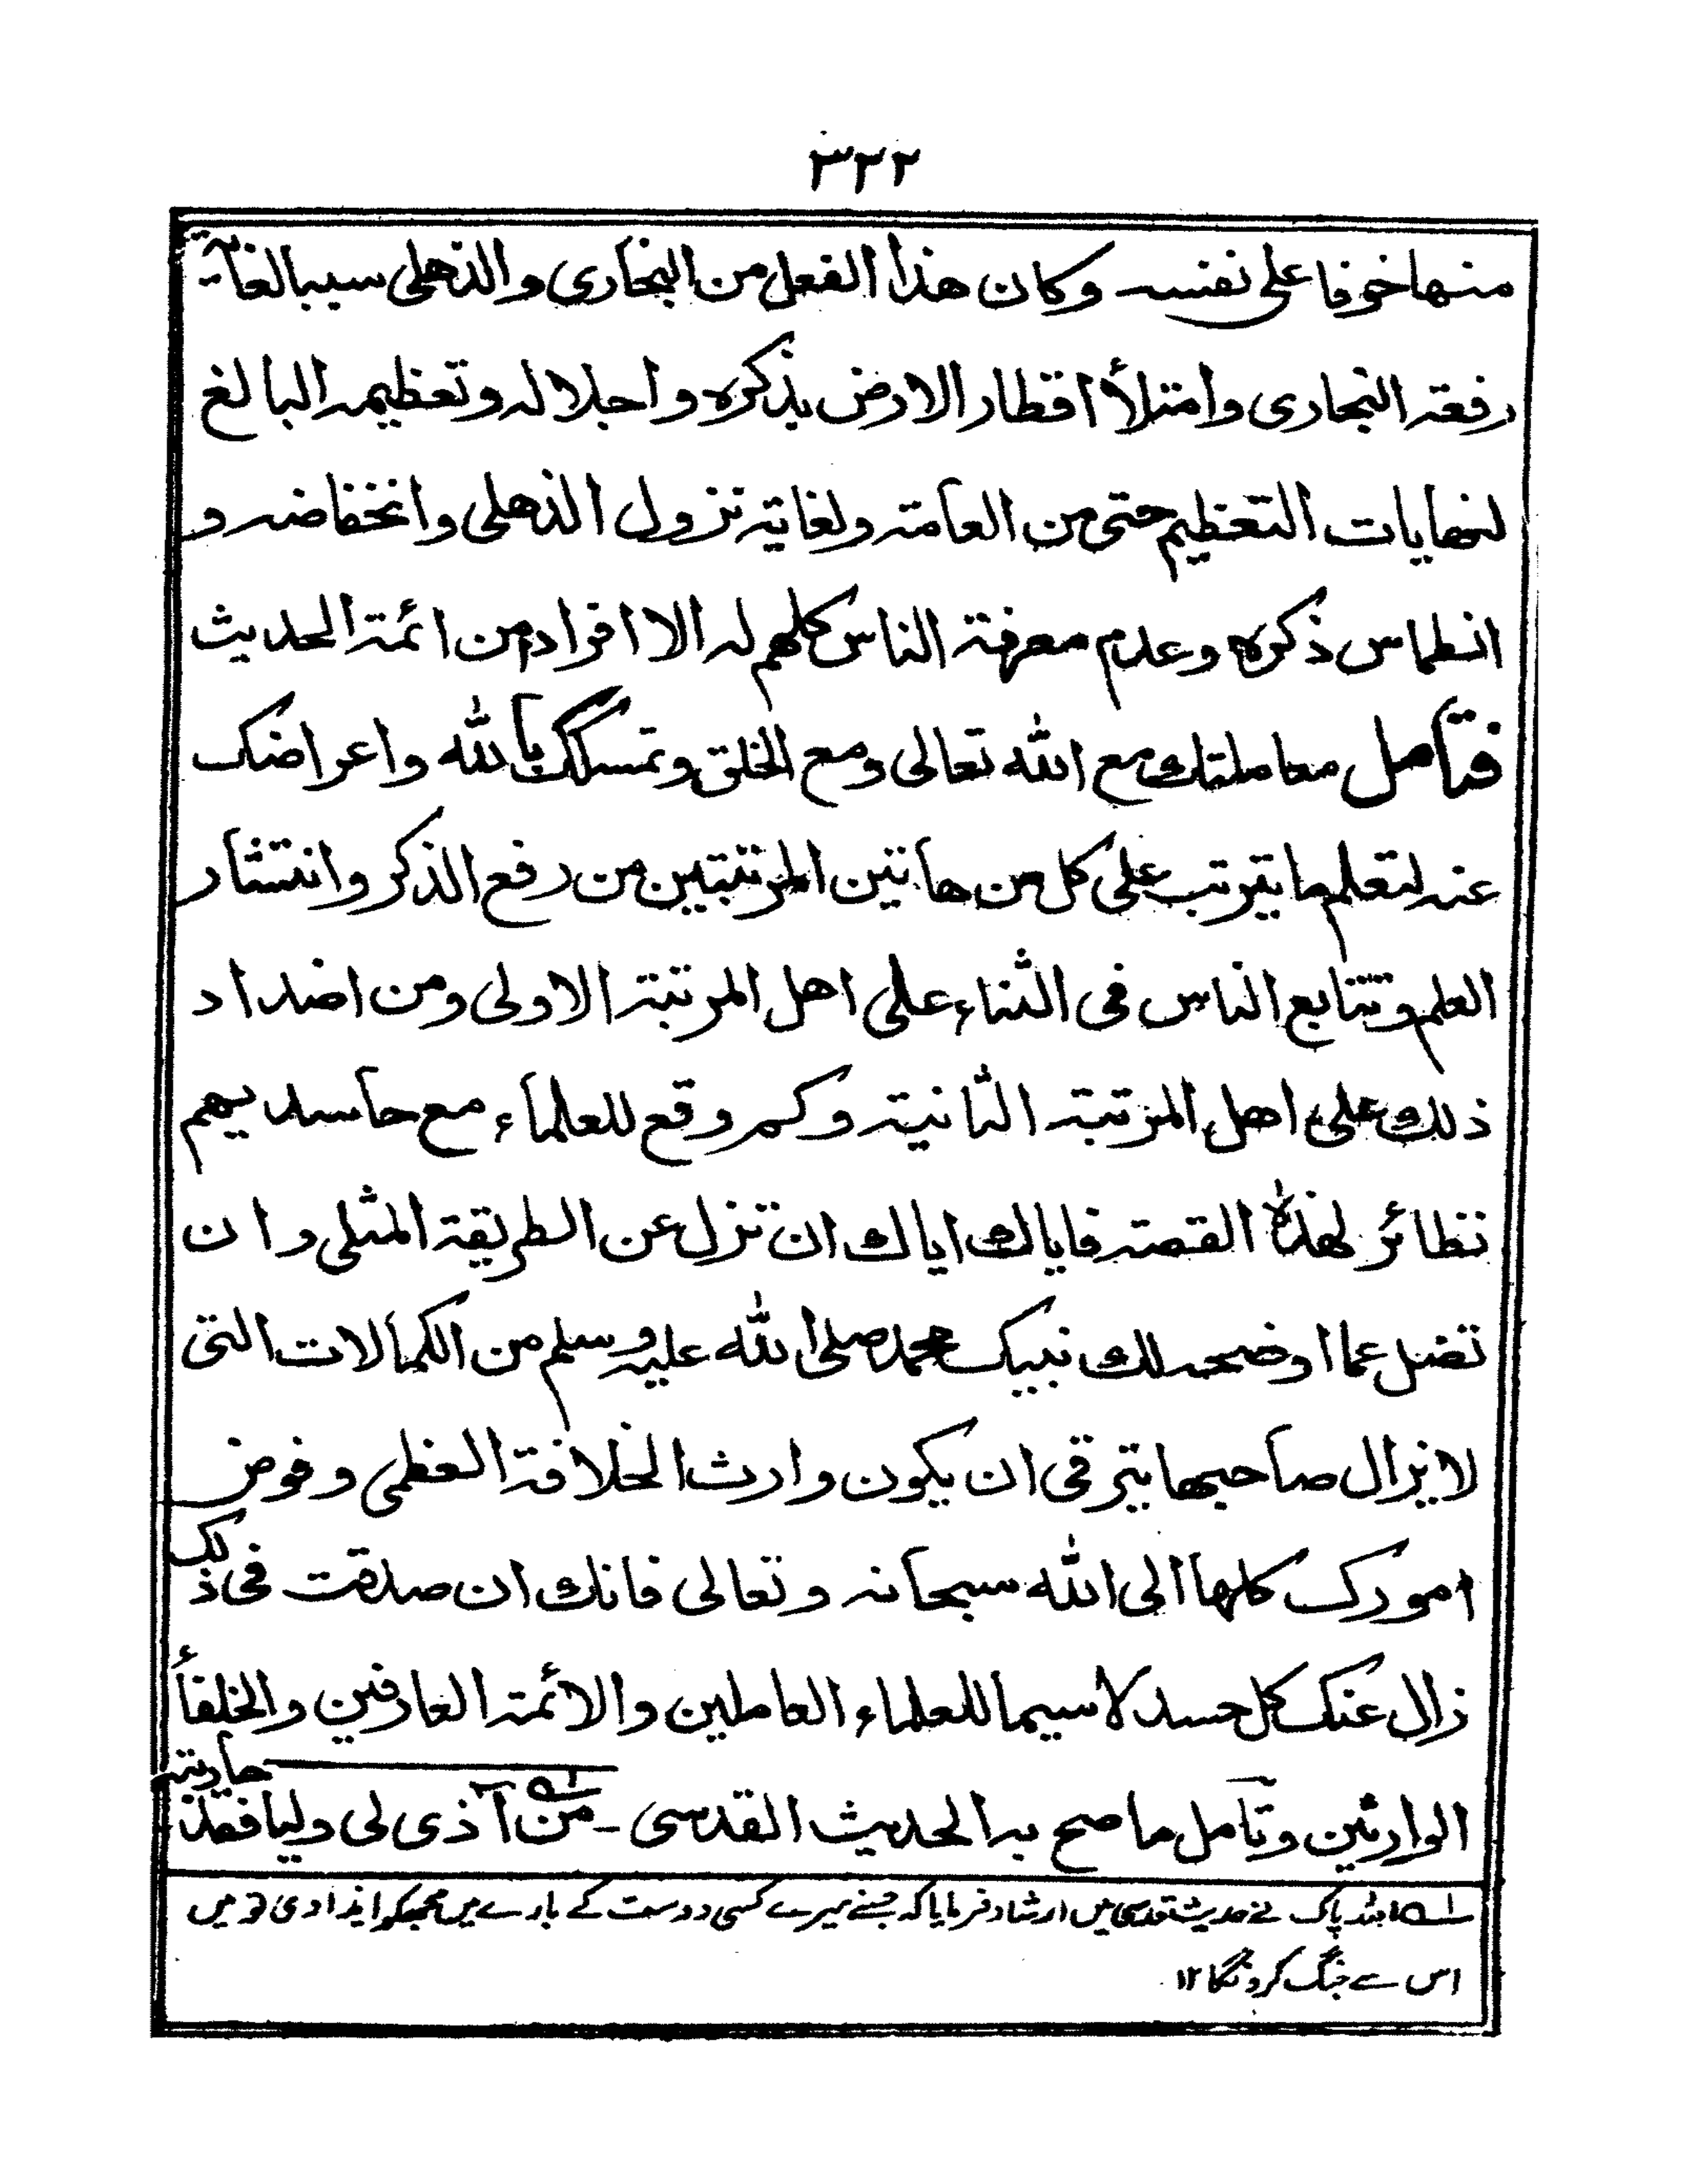 ٣٢٢
منها خوفا على نفسه وكان هذا الفعل من البخارى والذهلى سببا لغاية
رفعة البخارى وامتلأ اقطار الارض بذكره واجلاله وتعظيمه البالغ
لنهايات التعظيم حتى من العامة ولغاية نزول الذهلى وانخفاضه و
انطماس ذكره وعدم معرفة الناس كلهم له الا افراد من ائمة الحديث
فتأمل معاملتك مع الله تعالى ومع الخلق وتمسكك بالله واعراضك
عنه لتعلم ما يترتب على كل من هاتين المرتبتين من رفع الذكر وانتشار
العلم وتتابع الناس فى الثناء على اهل المرتبة الاولى ومن اضداد
ذلك على اهل المرتبة الثانية وكم وقع للعلماء مع حاسديهم
نظائر لهذه القصة فاياك اياك ان تنزل عن الطريقة المثلى وان
تضل عما اوضحه لك نبيك محمد صلى الله عليه وسلم من الكمالات التى
لا يزال صاحبها يترقى ان يكون وارث الخلافة العظمى وفوض
امورك كلها الى الله سبحانه وتعالى فانك ان صدقت فى ذلك
زال عنك كل حسد لا سيما للعلماء العاملين والائمة العارفين والخلفاء
الوارثين وتامل ما صح به الحديث القدسى - من آذى لى وليا فقد حاربته
؎۱ اللہ پاک نے حدیث قدسی میں ارشاد فرمایا کہ جسنے میرے کسی دوست کے بارے میں مجھکو ایذا دی تو میں
اس سے جنگ کرونگا ۱۲